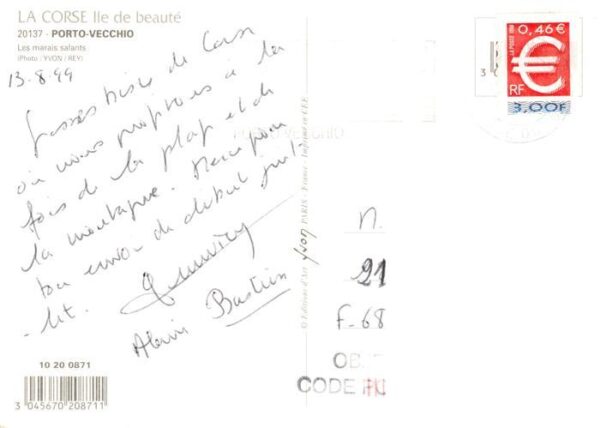 LA CORSE Ile de beauté
20137 - PORTO-VECCHIO
Les marais salants
(Photo : YVON / REY)
13.8.99
Grosses bises de Corse
où nous profitons à la
fois de la plage et de
la montagne. Merci pour
ton envoi de début juil-
let.
Alain Bastien
10 20 0871
3 045670 208711
© Editions d'Art yvon PARIS - France - Imprimé en CEE
PORTO VECCHIO
0,46 €
LA POSTE
€
RF
3,00F
n.
21
F-68
CODE